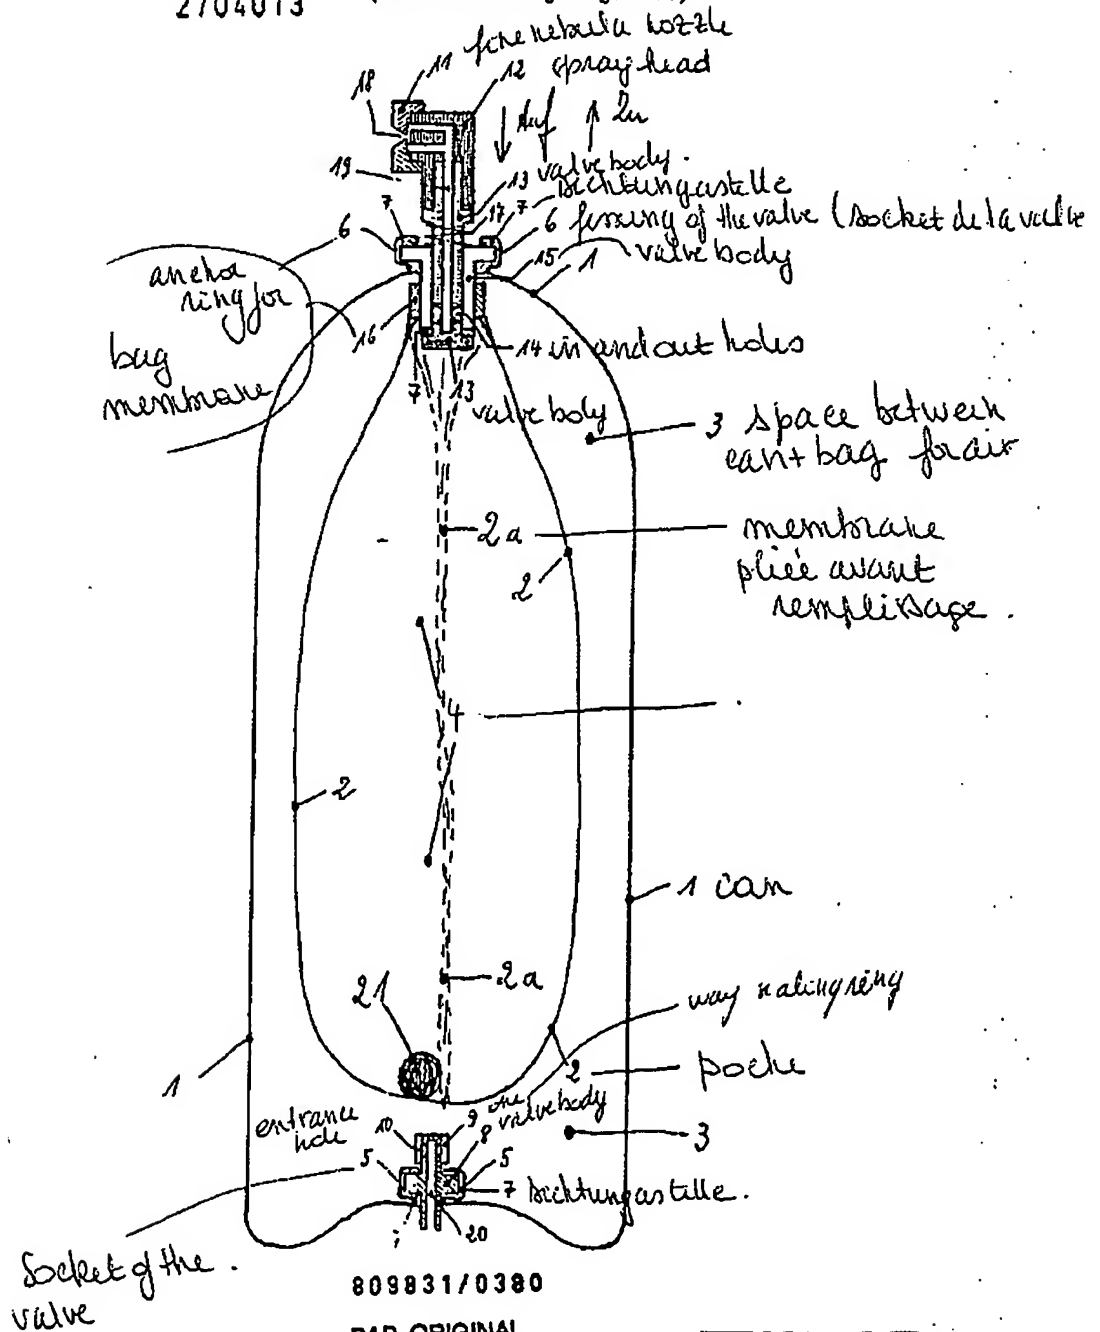 2704013
11 fine nebula nozzle
12 spray head
18
Auf Zu
19
13 valve body.
7 17 7 Dichtungastelle
6 6 fixing of the valve (socket de la valve
15 valve body
1
anchor
ring for
bag
membrane
16
14 in and out holes
7 13
valve body
3 space between
can + bag for air
2a membrane
pliée avant
remplissage.
2
4
2
1 can
2a
21
way nalingring
1
2 poche
entrance
hole
10 9 the
valve body
8
3
5 5
7 Dichtungastelle.
20
Socket of the.
valve
809831/0380